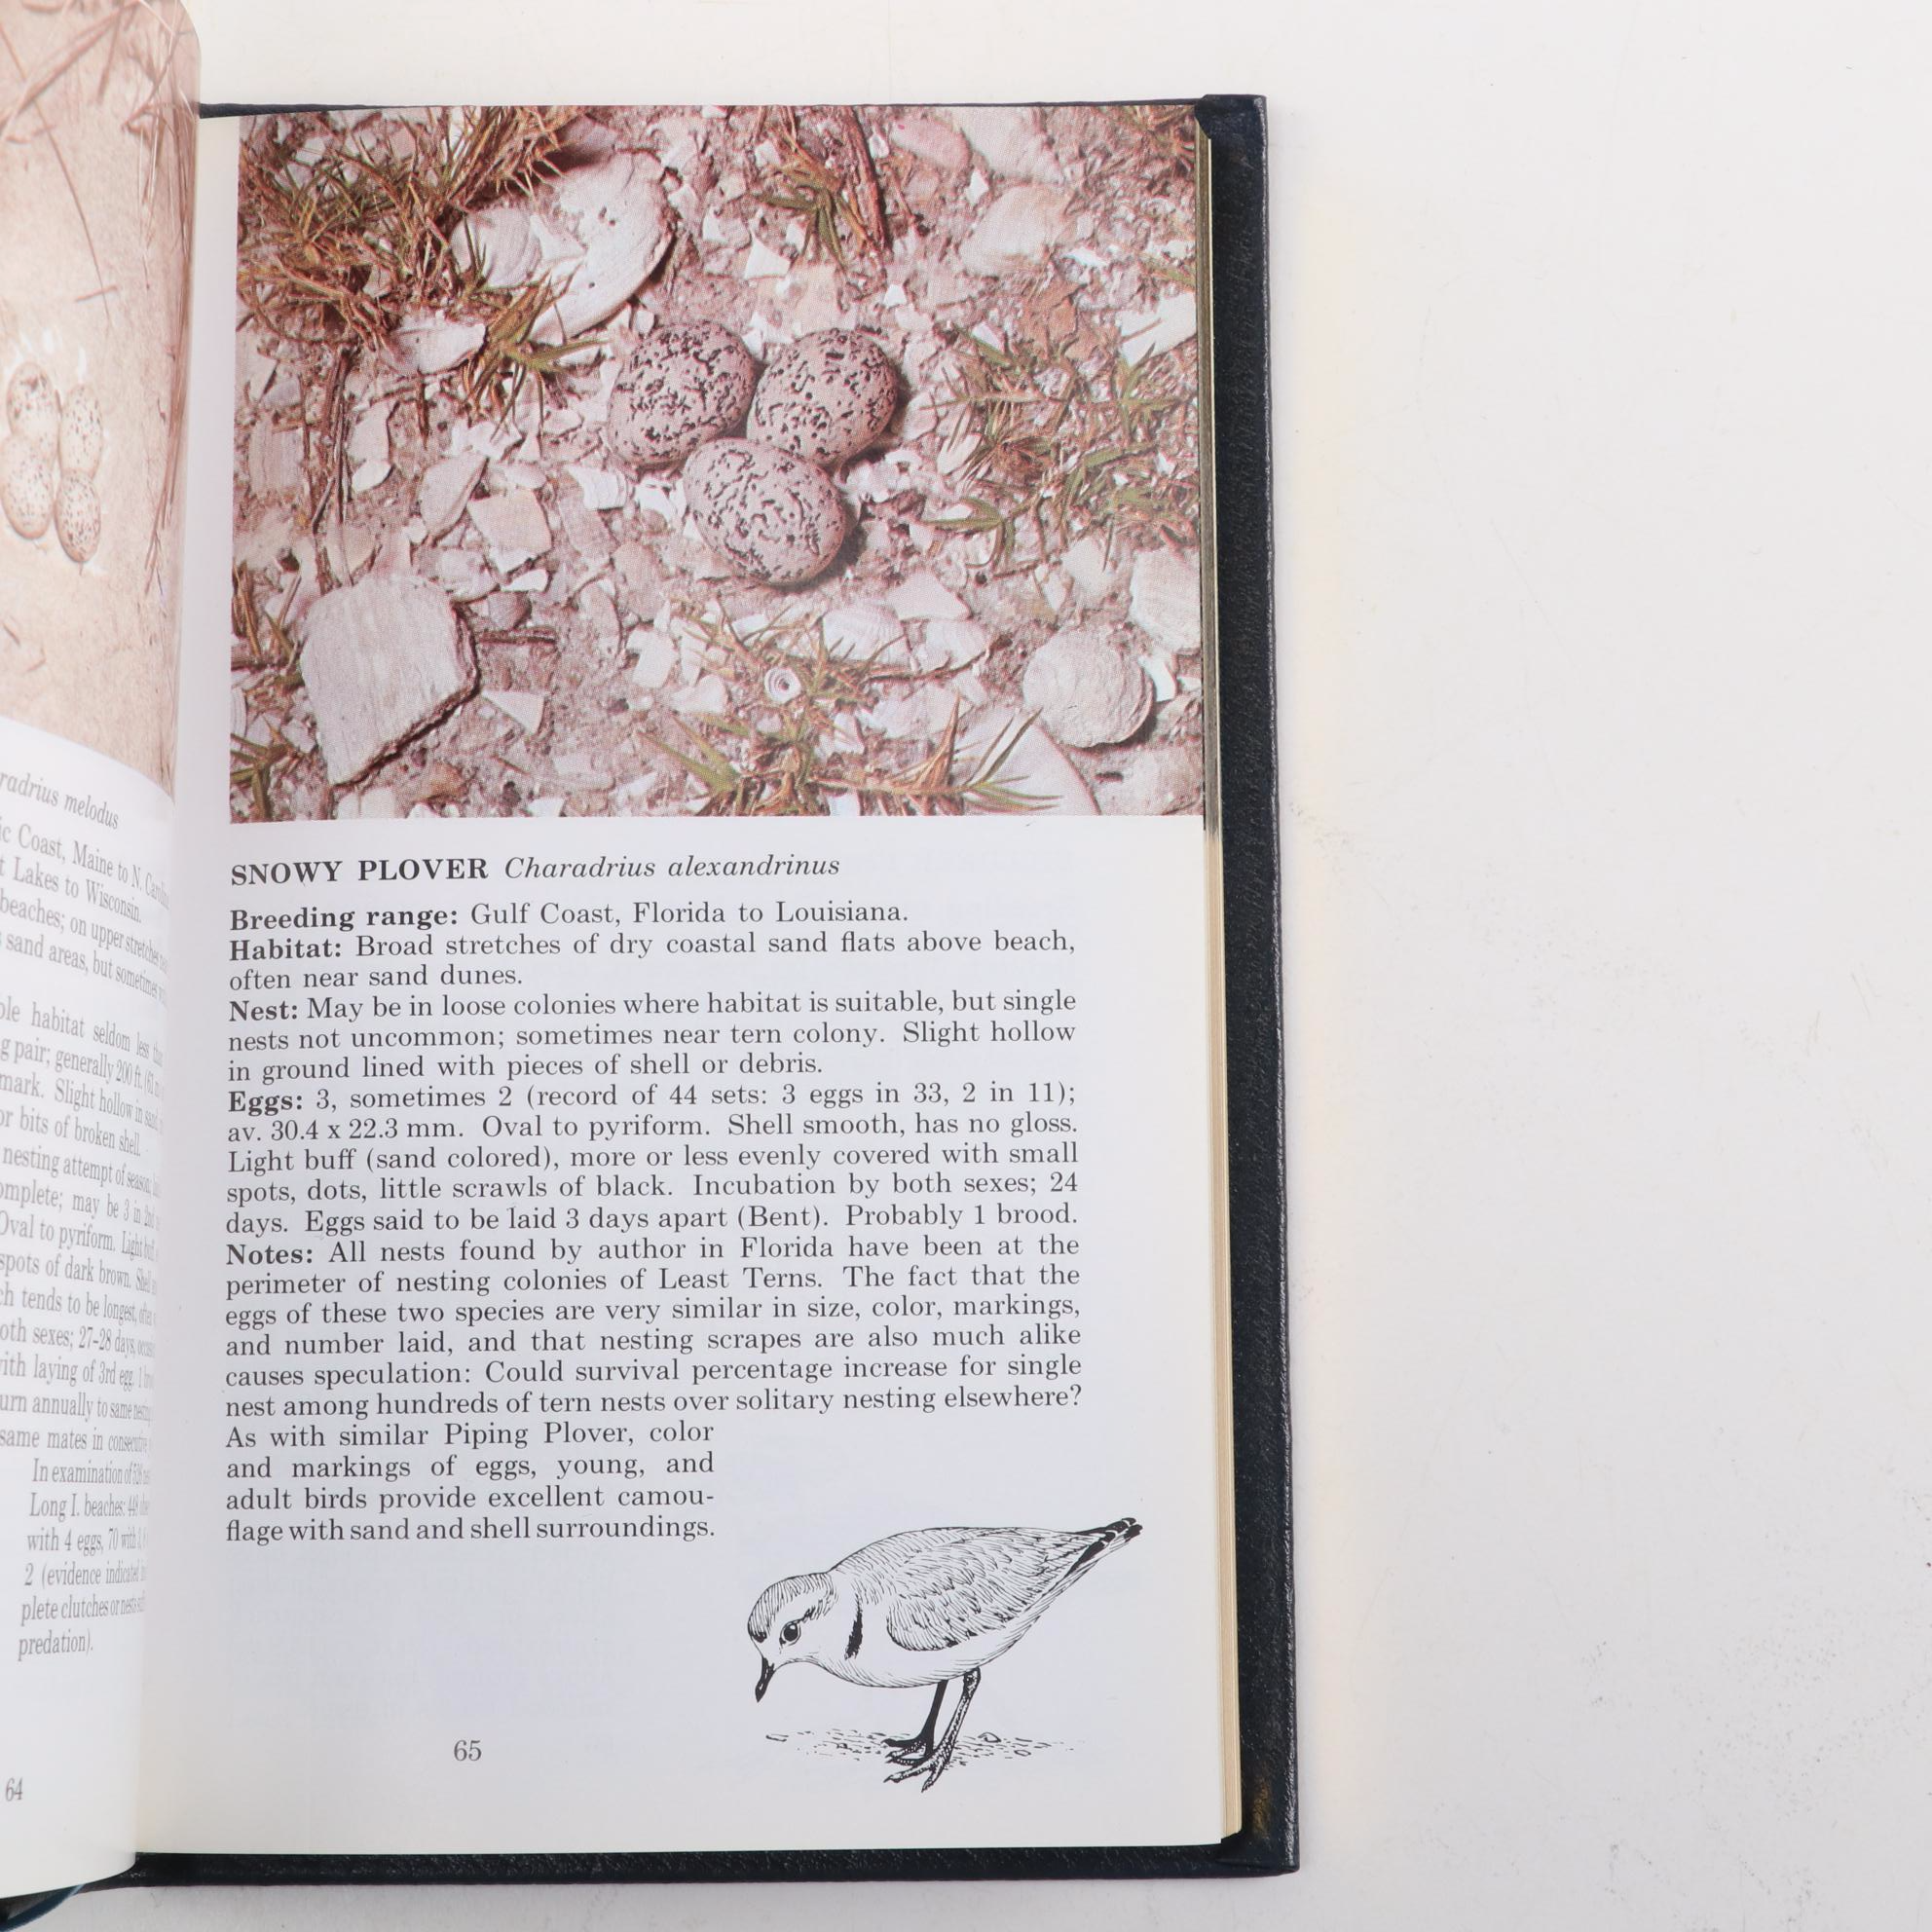 melodus
Coast, Maine to N.
Lakes to Wisconsin.
beaches; on upper stretches
sand areas, but sometimes
habitat seldom less
pair; generally 200 ft.
mark. Slight hollow in
or bits of broken shell.
nesting attempt of season;
may be 3 in
Oval to pyriform. Light
spots of dark brown.
tends to be longest,
sexes; 27–28 days,
with laying of 3rd egg. 1
annually to same
same mates in
In examination of
Long I. beaches:
with 4 eggs, 70 with
2 (evidence indicated
plete clutches or
predation).
64
SNOWY PLOVER Charadrius alexandrinus
Breeding range: Gulf Coast, Florida to Louisiana.
Habitat: Broad stretches of dry coastal sand flats above beach,
often near sand dunes.
Nest: May be in loose colonies where habitat is suitable, but single
nests not uncommon; sometimes near tern colony. Slight hollow
in ground lined with pieces of shell or debris.
Eggs: 3, sometimes 2 (record of 44 sets: 3 eggs in 33, 2 in 11);
av. 30.4 x 22.3 mm. Oval to pyriform. Shell smooth, has no gloss.
Light buff (sand colored), more or less evenly covered with small
spots, dots, little scrawls of black. Incubation by both sexes; 24
days. Eggs said to be laid 3 days apart (Bent). Probably 1 brood.
Notes: All nests found by author in Florida have been at the
perimeter of nesting colonies of Least Terns. The fact that the
eggs of these two species are very similar in size, color, markings,
and number laid, and that nesting scrapes are also much alike
causes speculation: Could survival percentage increase for single
nest among hundreds of tern nests over solitary nesting elsewhere?
As with similar Piping Plover, color
and markings of eggs, young, and
adult birds provide excellent camou-
flage with sand and shell surroundings.
65